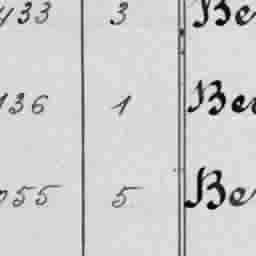 433 3 Be
136 1 Be
055 5 Be